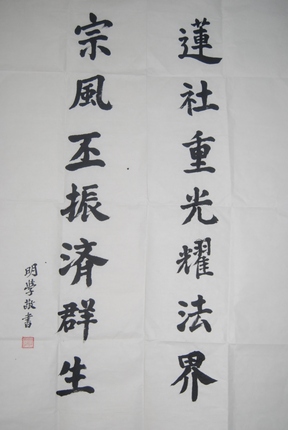 蓮社重光耀法界
宗風丕振済群生
明學敬書